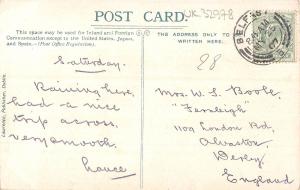 POST CARD.
UK 32978
This space may be used for Inland and Foreign
Communication except to the United States, Japan,
and Spain.—(Post Office Regulation).
THE ADDRESS ONLY TO BE
WRITTEN HERE.
BELFAST
28
Saturday.
Raining here,
had a nice
trip across,
very smooth.
Mrs. W. S. Boole,
"Fernleigh"
1109 London Rd,
Alvaston,
Derby,
England
Lawrence, Publisher, Dublin.